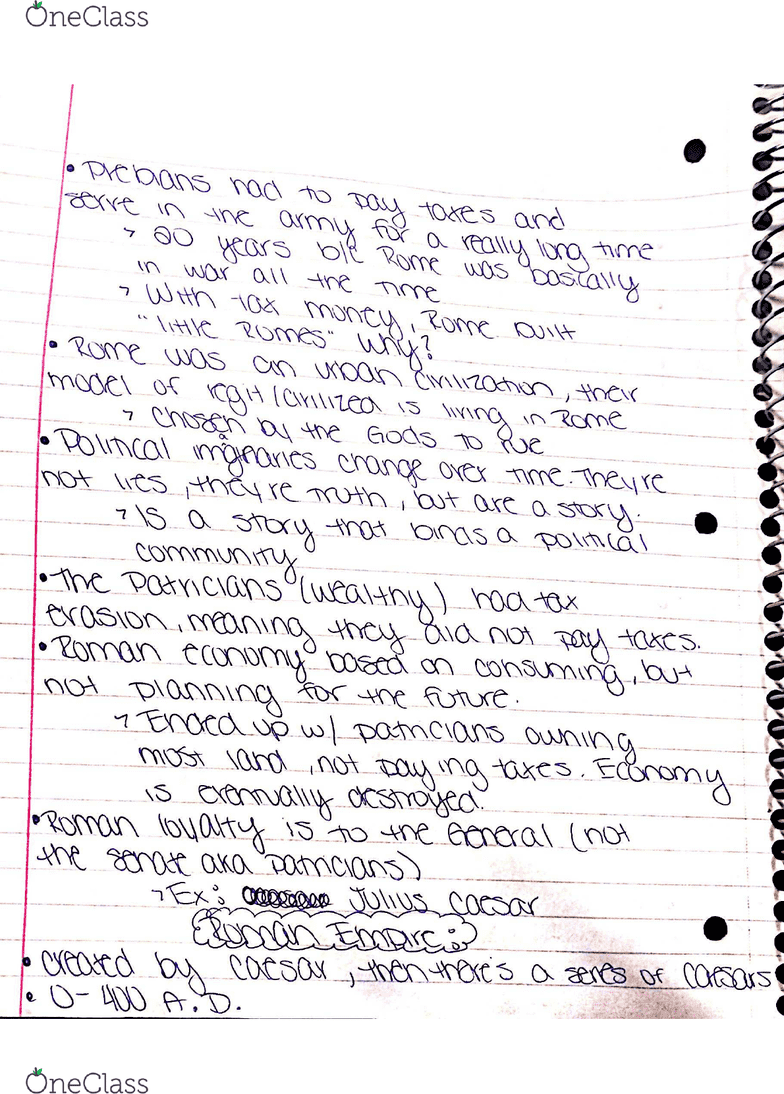 OneClass
• Plebians had to pay taxes and
serve in the army for a really long time
→ 20 years b/c Rome was basically
in war all the time
→ With tax money, Rome built
"little Romes" Why?
• Rome was an urban civilization, their
model of legit/civilized is living in Rome
→ Chosen by the Gods to rule
• Political imaginaries change over time. They're
not lies, they're truth, but are a story.
→ Is a story that binds a political
community
• The Patricians (wealthy) had tax
evasion, meaning they did not pay taxes.
• Roman economy based on consuming, but
not planning for the future.
→ Ended up w/ patricians owning
most land, not paying taxes. Economy
is eventually destroyed.
• Roman loyalty is to the General (not
the senate aka patricians)
→ Ex: Julius Caesar
Roman Empire:
• created by caesar, then there's a series of caesars
• 0-400 A.D.
OneClass